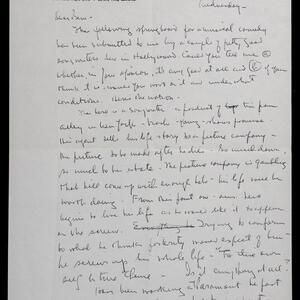 Wednesday -
Dear Sam -
The following springboard for a musical comedy
has been submitted to me by a couple of pretty good
songwriters here in Hollywood. Could you tell me (a)
whether, in your opinion, it's any good at all and (b) if you
think it is, would you work on it and under what
conditions. Here's the notion -
The hero is a songwriter - a product of the tin pan
alley in New York - broke - young - shows promise.
His agent sells his life story to a picture company -
the picture to be made after he dies. So much down,
so much to the estate. The picture company is gambling
that he'll come up with enough hits - his life will be
worth doing. From then on - our hero
begins to live his life as he would like it to appear
on the screen. Trying to conform
to what he thinks posterity would expect of him -
he screws up his whole life - "To thine own
self be true" theme - Is it anything at all?
Have been working at Paramount the past